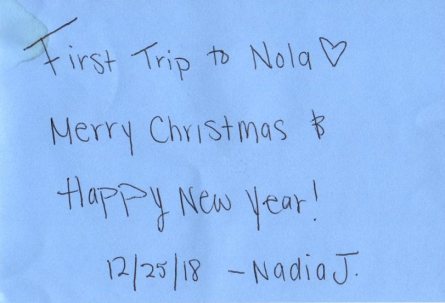 First Trip to Nola ♡
Merry Christmas &
Happy New Year!
12/25/18 - Nadia J.